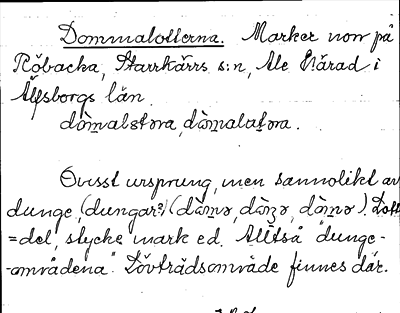 Dommalotterna. Marker norr på
Röbacka, Starrkärrs s:n, Ale Härad i
Älfsborgs län.
Ovisst ursprung, men sannolikt av
dunge, (dungar?) Lott
=del, stycke mark ed. Alltså "dunge-
-områdena". Lövträdsområde finnes där.